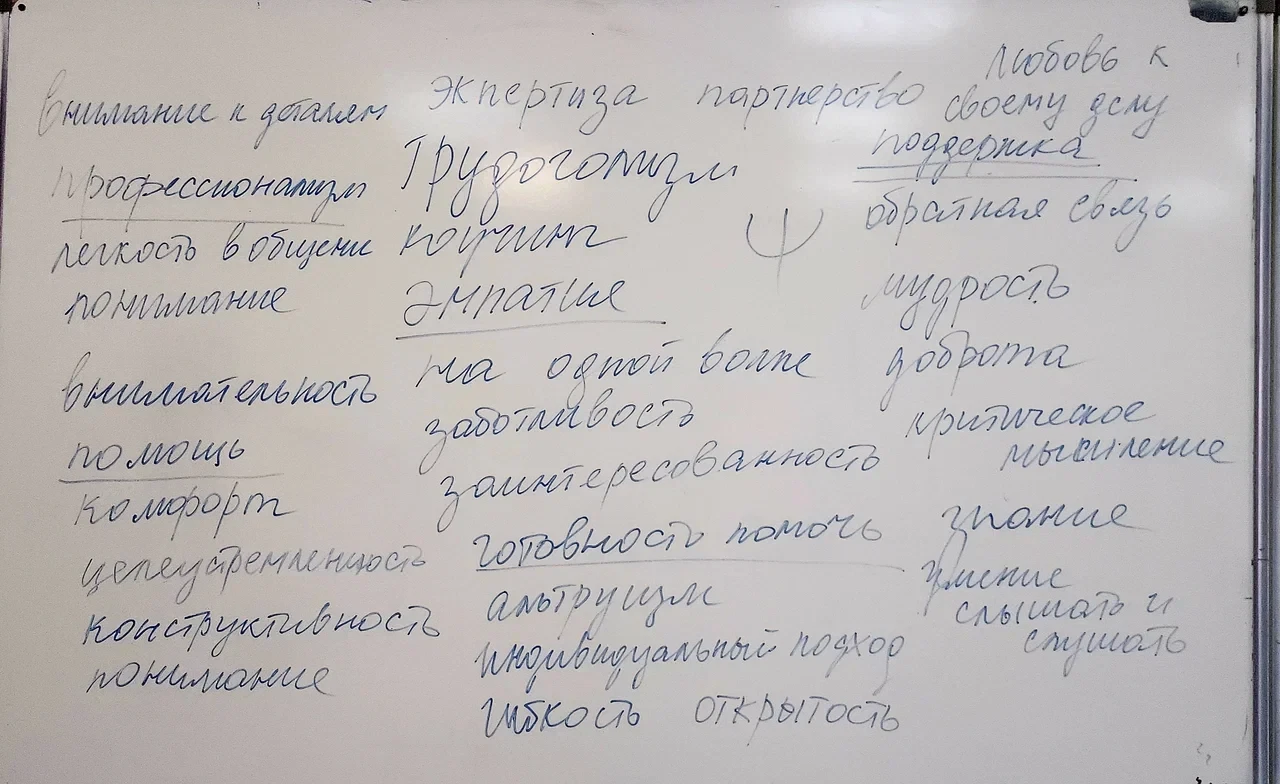 внимание к деталям
профессионализм
легкость в общени
понимание
внимательность
помощь
комфорт
целеустремленность
конструктивность
понимание
экспертиза партнерство
трудоголизм
коучинг
эмпатия
на одной волне
заботливость
заинтересованность
готовность помочь
альтруизм
индивидуальный подход
гибкость открытость
любовь к
своему делу
поддержка
обратная связь
мудрость
доброта
критическое
мышление
знание
умение
слышать и
слушать